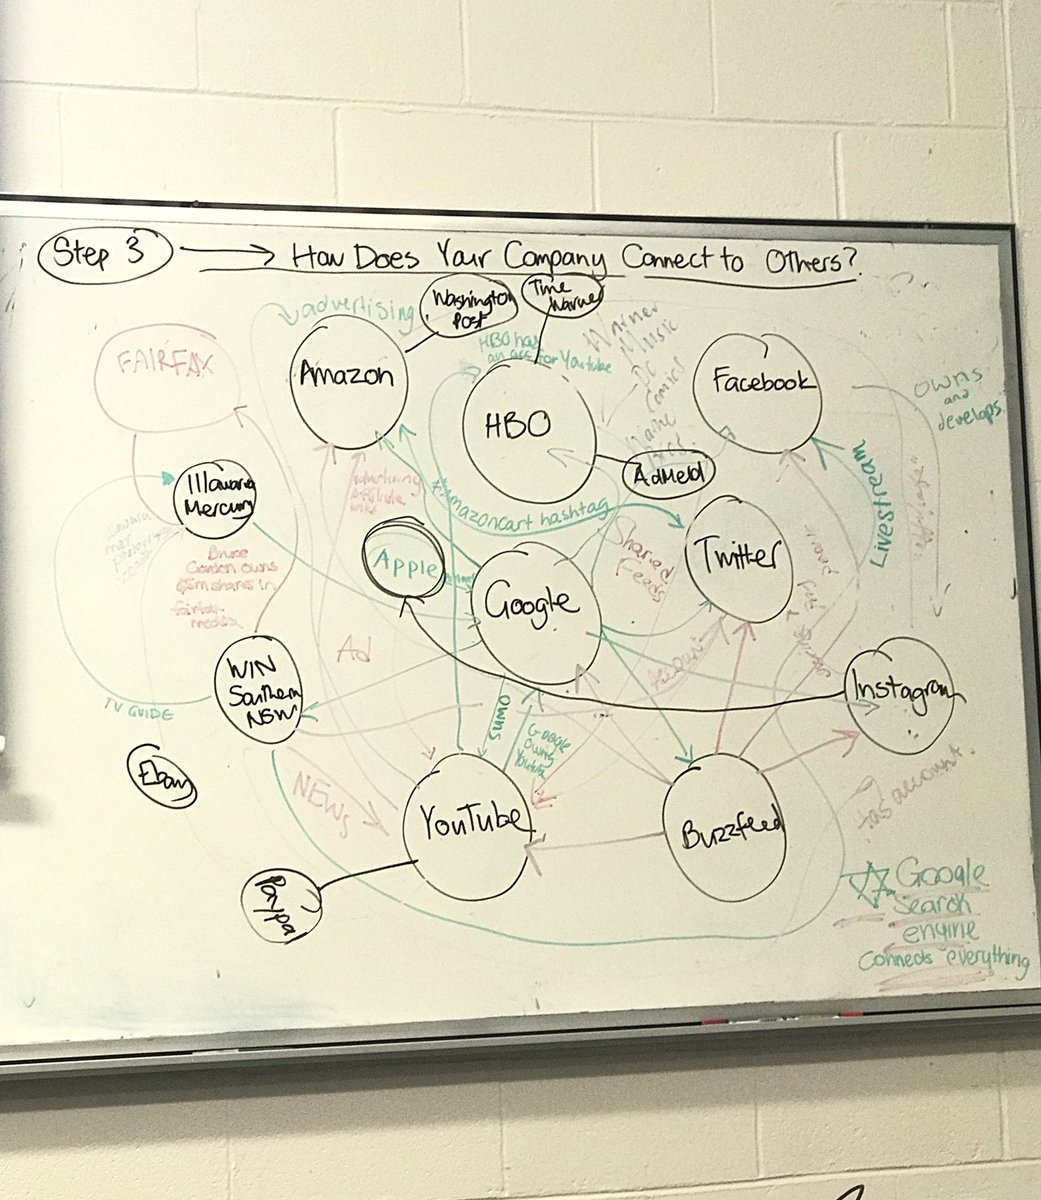 Step 3
How Does Your Company Connect to Others?
advertising
Washington
Post
Time
Warner
FAIRFAX
Amazon
HBO has
an acc for Youtube
HBO
Warner
Music
DC
Comics
Facebook
owns
and
develops
Illawara
Mercury
AdMeld
Advertising
affiliate
links
#Amazoncart hashtag
Livestream
Apple
Google
Shared
Feeds
Twitter
Bruce
Gordon owns
shares in
fairfax
media
Ad
account
WIN
Southern
NSW
Instagram
TV GUIDE
SUMO
Google
owns
Youtube
Ebay
NEWS
YouTube
Buzzfeed
has account
Paypal
Google
Search
engine
Connects everything